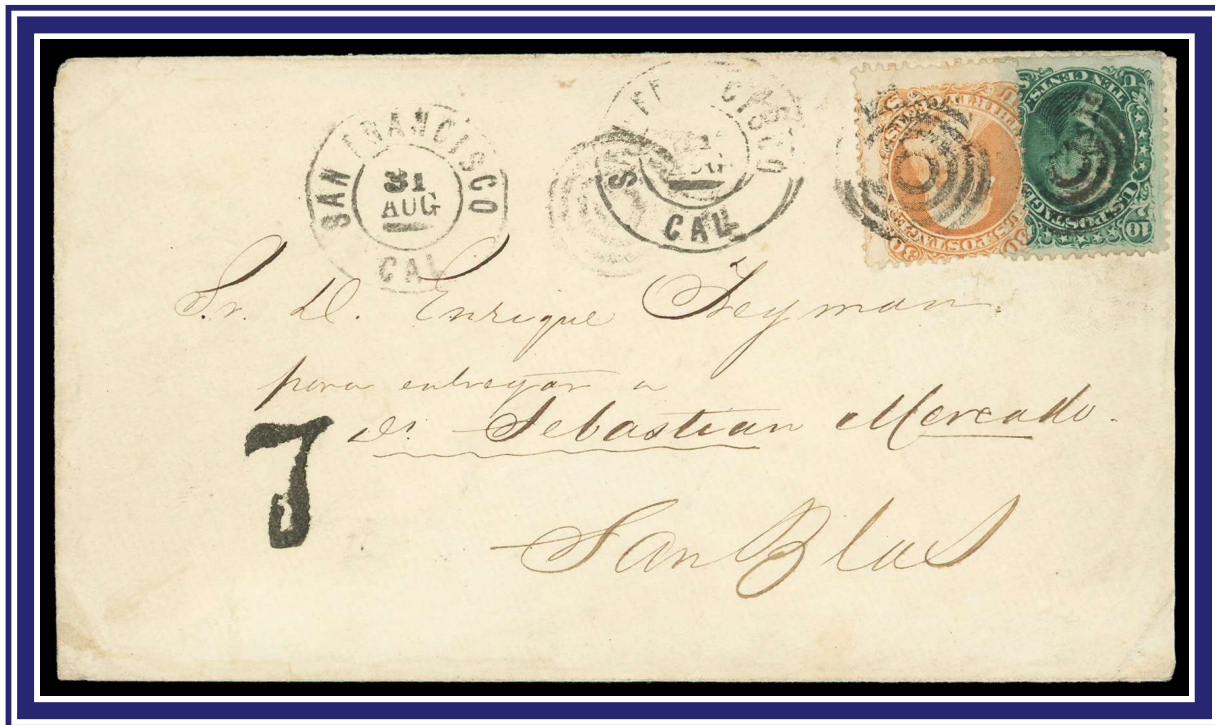 SAN FRANCISCO
31
AUG
CAL
SAN FRANCISCO
AUG
CAL
30 U.S. POSTAGE 30
TEN CENTS.
U.S. POSTAGE
10
Sr. D. Enrique Heyman.
para entregar a
Dn. Sebastian Mercado.
7
San Blas